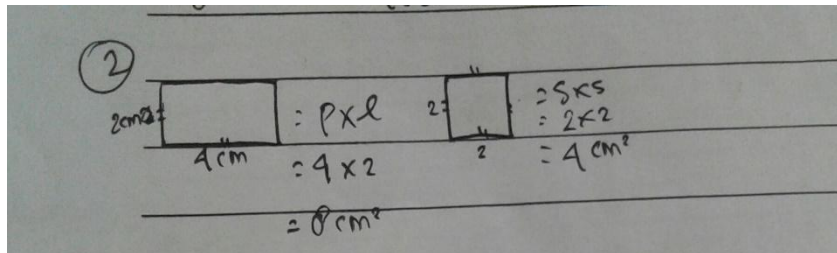 2
2cm
4cm
= p x l
= 4 x 2
= 8 cm²
2
2
= s x s
= 2 x 2
= 4 cm²